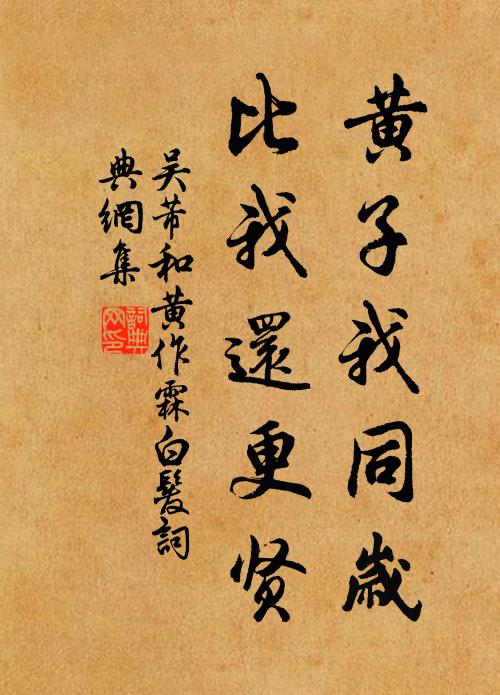 黄子我同歲
比我還更贤
吴芾和黄作霖白髮詞
典網集
詞典网印